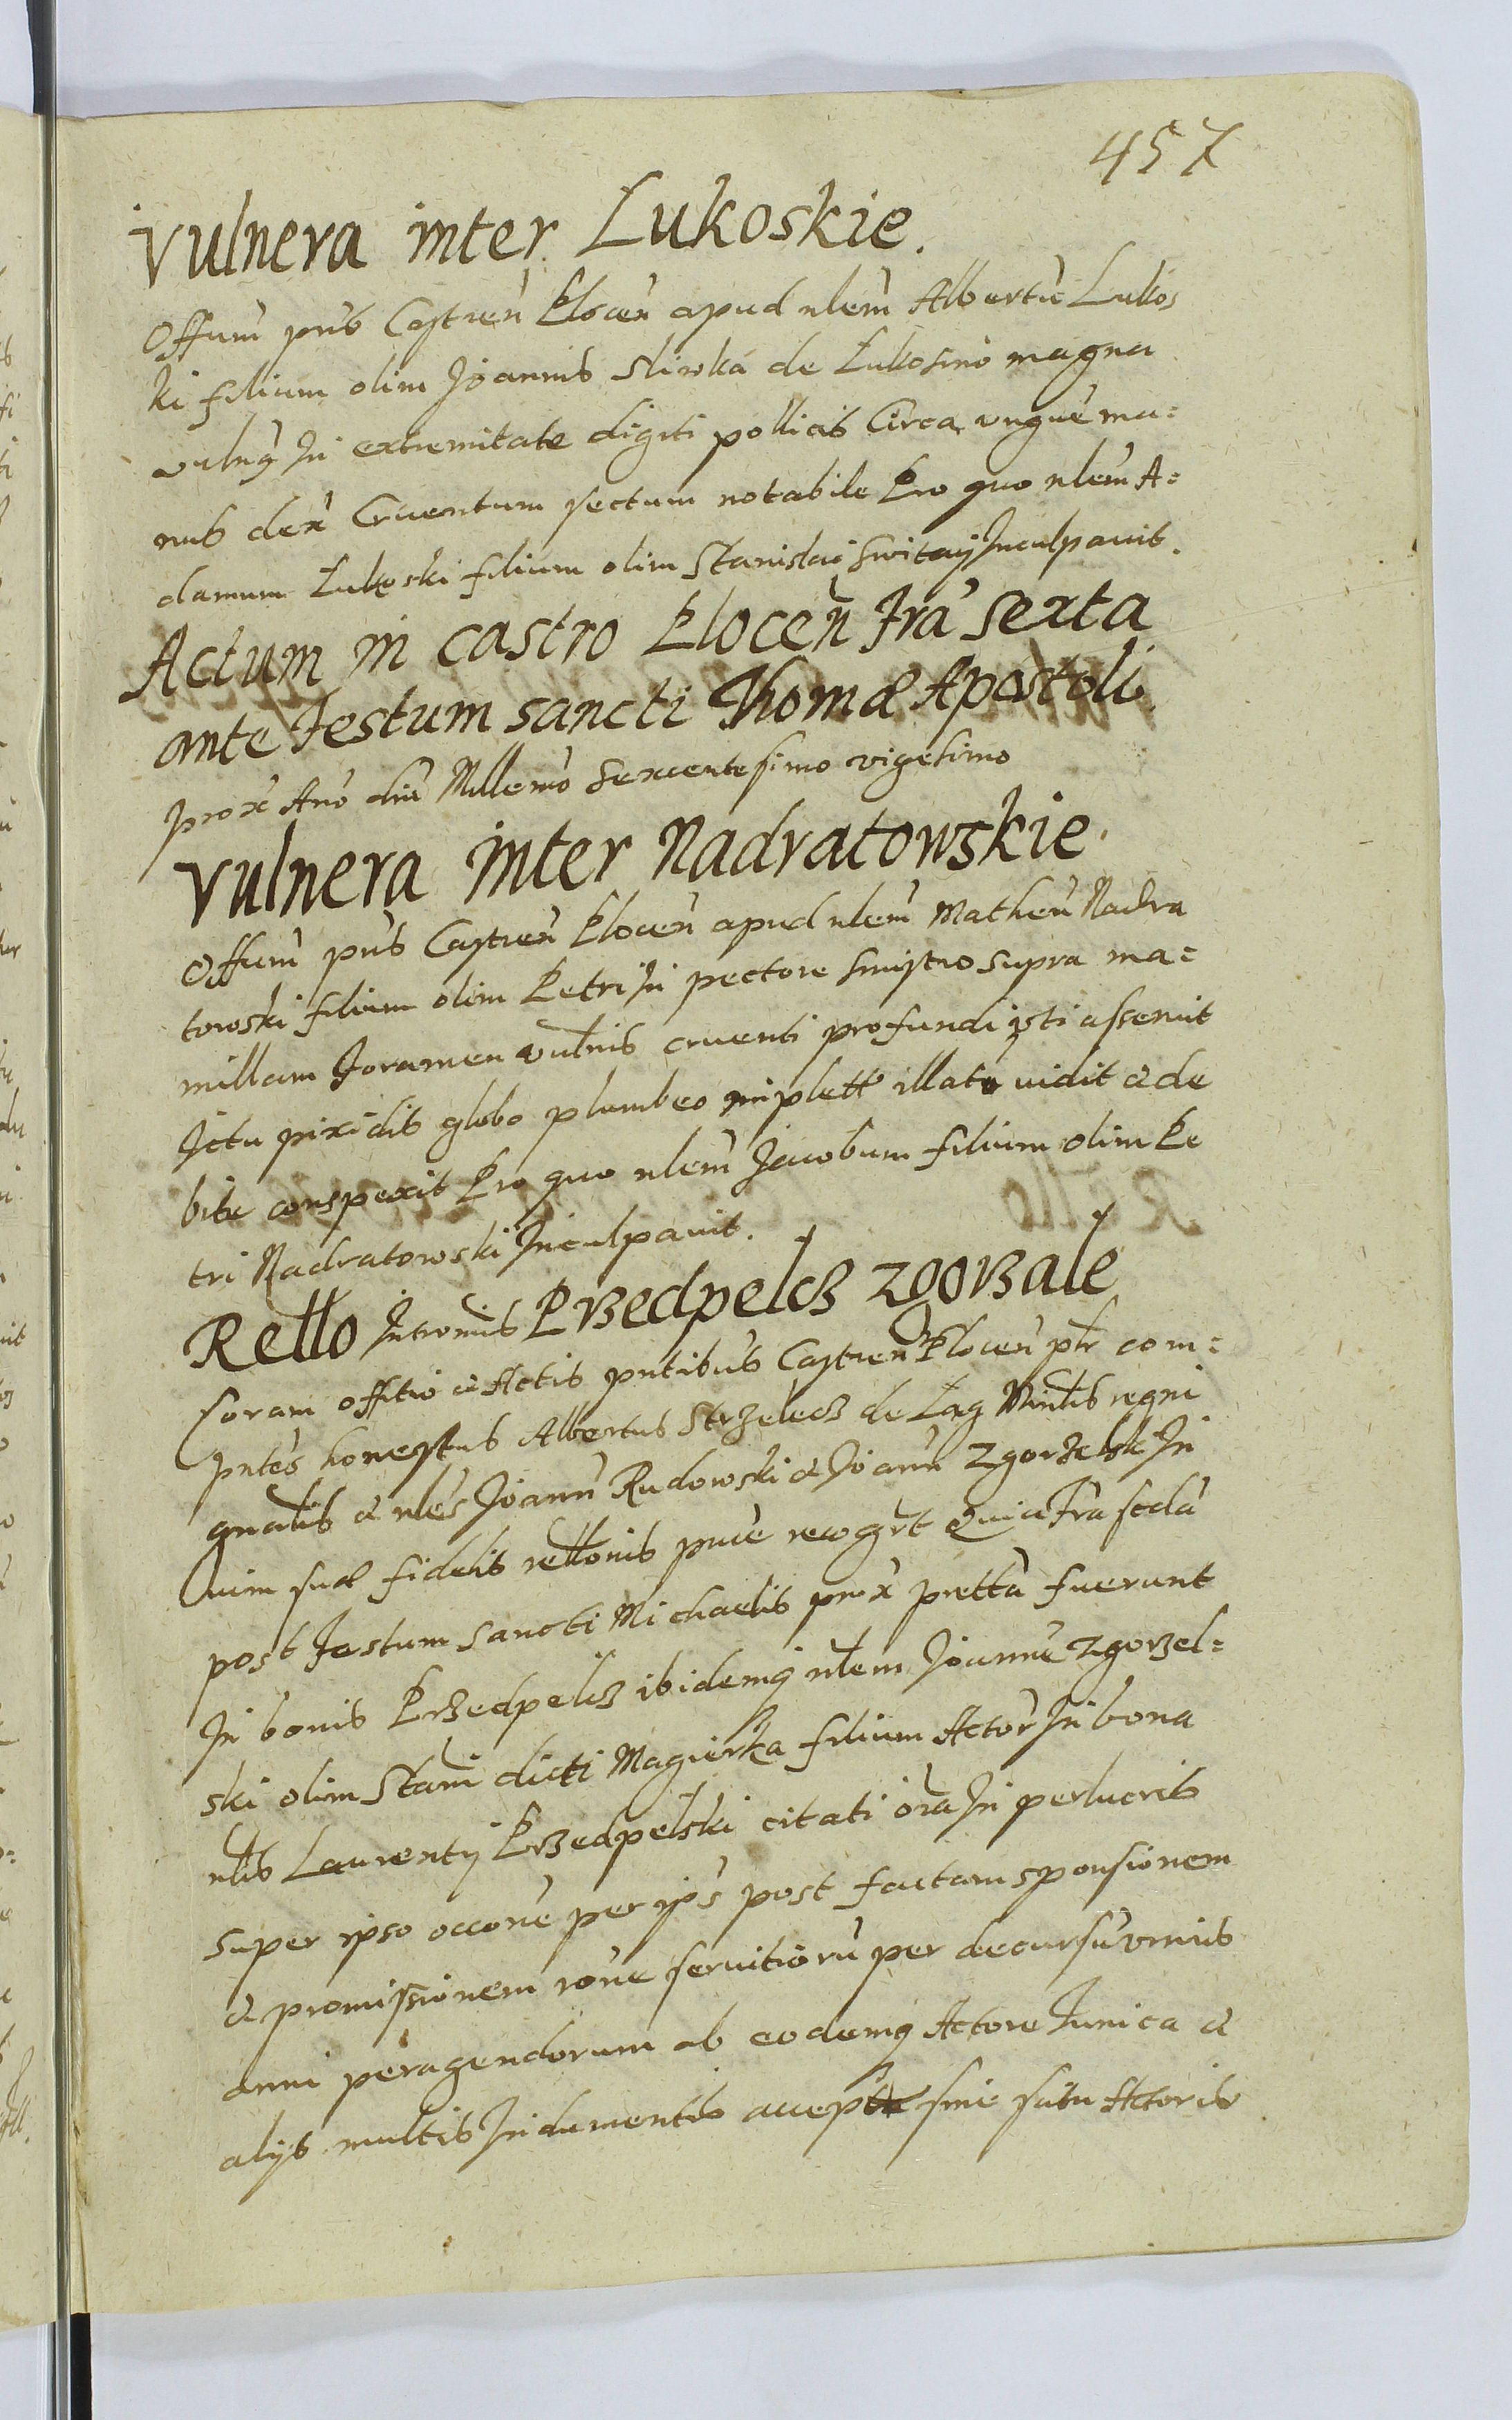 457
Vulnera inter Lukoskie.
Offium pns Castren Plocen apud nlem Albertu Lukos
ki filium olim Joannis Sliwka de Lukosino magna
vulnq In extremitate digiti pollicis Circa ungue ma=
nus dex Cruentum sectum notabile Pro quo nlem A=
damum Lukoski filium olim Stanislai Inculpavit.
Actum in castro Plocen Fra sexta
ante Festum sancti Thomæ Apostoli
prox Ano dni Millemo Sexcentesimo vigesimo
Vulnera inter Nadratowskie.
Offium pns Castren Plocen apud nlem Matheu Nadra
towski filium olim Petri In pectore sinistro supra ma=
millam Foramen vulnis cruenti profundi isti asseruit
Ictu pixidis globo plumbeo implett illatu vidit & de
bite conspexit Pro quo nlem Jacobum filium olim Pe
tri Nadratowski Inculpavit.
Rello Intromis Przedpelcz zgorzale
Coram offitio & Actis pntibus Castren Plocen psr com=
pntes honestus Albertus Strzelecz de Lag Minlis regni
gnalis & nles Joann Rudowski & Joann Zgorzelski In
vim suæ fidelis rellonis puce recogrt Quia Fra scda
post Festum Sancti Michaelis prox prtta fuerunt
In bonis Przedpelcz ibidemq nlem Joanne Zgorzel=
ski olim Stani dicti Magierka filium Actor In bona
nlis Laurentij Przedpelski citati ora In perlucris
super ipso occone per ips post factam sponsionem
& promissionem rone servitioru per decursu unius
anni peragendorum ab eodemq Actore Tunica &
alijs multis Indumentis accept sine scitu Actoris